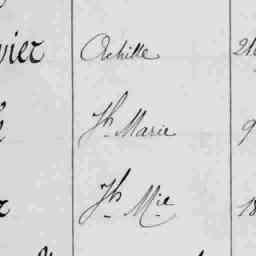 vier Achille 21
Jh Marie 9
Jh Mie 18